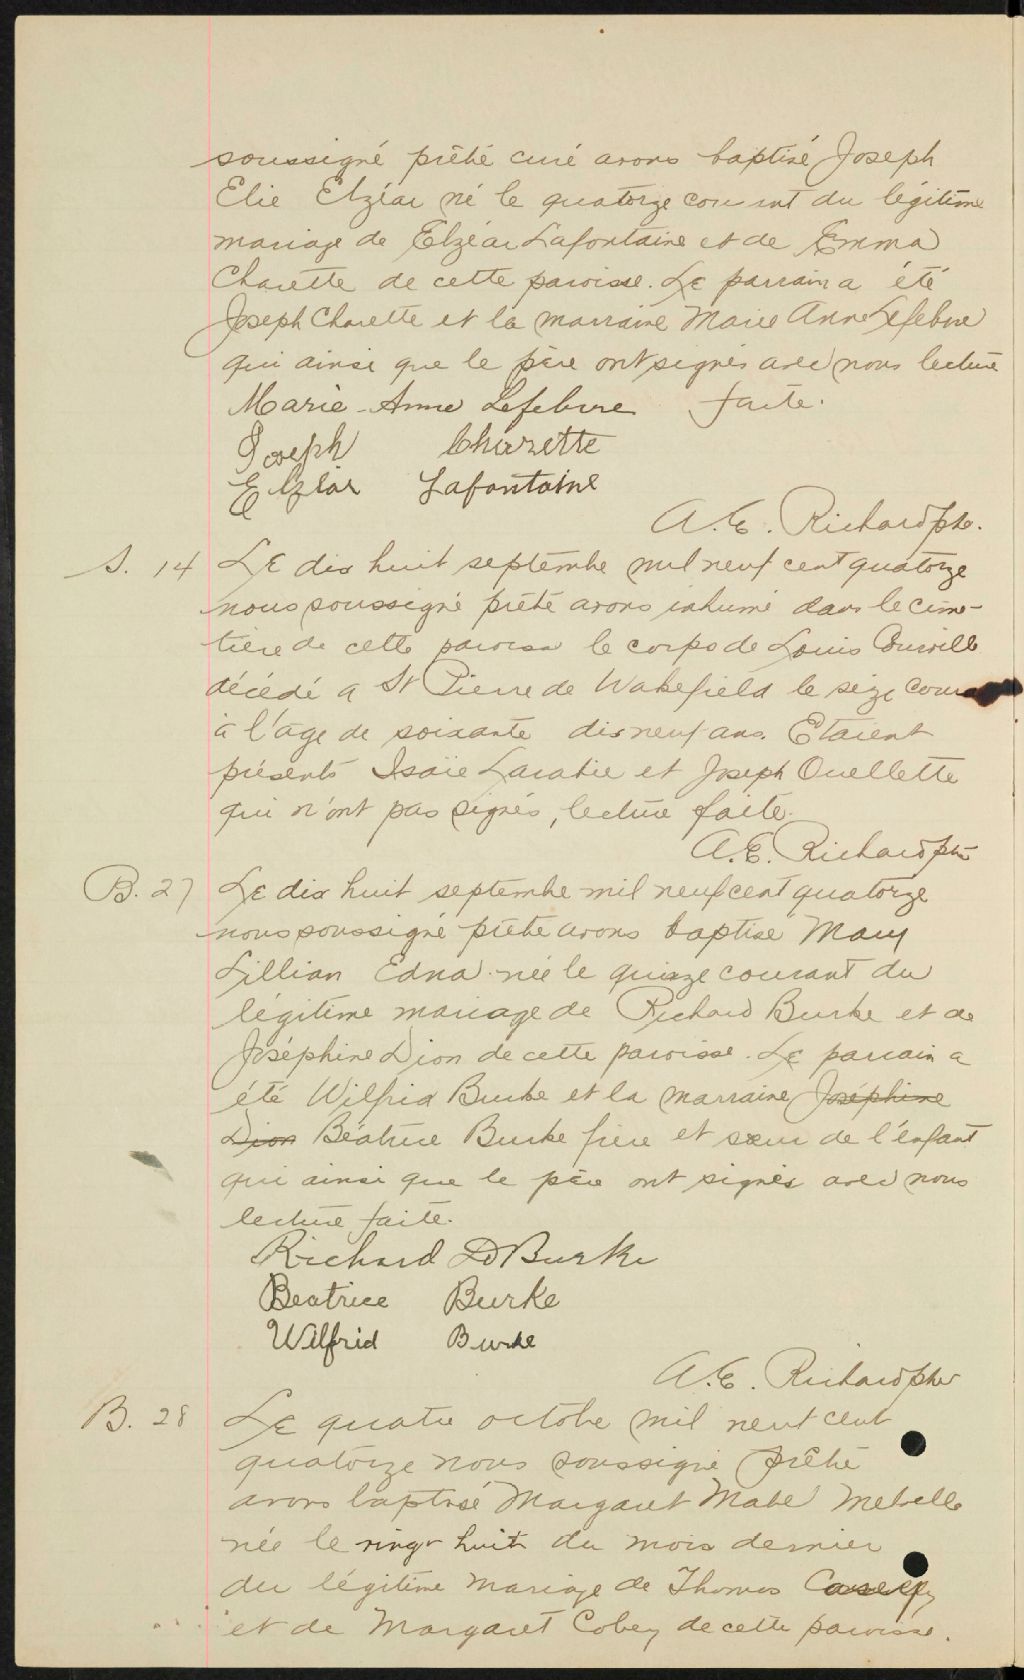 soussigné prêtre curé avons baptisé Joseph
Elie Elzéar né le quatorze courant du légitime
mariage de Elzéar Lafontaine et de Emma
Charette de cette paroisse. Le parrain a été
Joseph Charette et la marraine Marie Anne Lefebvre
qui ainsi que le père ont signés avec nous lecture
Marie-Anne Lefebvre faite.
Joseph Charette
Elzéar Lafontaine
A. E. Richard ptre.
S. 14 Le dix huit septembre mil neuf cent quatorze
nous soussigné prêtre avons inhumé dans le cime-
tière de cette paroisse le corps de Louis
décédé a St Pierre de Wakefield le seize
à l'âge de soixante dix neuf ans. Etaient
présents Isaïe et Joseph Ouellette
qui n'ont pas signés, lecture faite.
A. E. Richard ptre
B. 27 Le dix huit septembre mil neuf cent quatorze
nous soussigné prêtre avons baptisé Mary
Lillian Edna née le quinze courant du
légitime mariage de Richard Burke et de
Joséphine Dion de cette paroisse. Le parrain a
été Wilfrid Burke et la marraine Joséphine
Dion Béatrice Burke frère et sœur de l'enfant
qui ainsi que le père ont signés avec nous
lecture faite.
Richard D Burke
Beatrice Burke
Wilfrid Burke
A. E. Richard ptre
B. 28 Le quatre octobre mil neuf cent
quatorze nous soussigné prêtre
avons baptisé Margaret Mabel
née le vingt huit du mois dernier
du légitime mariage de Thomas
et de Margaret Cobey de cette paroisse.